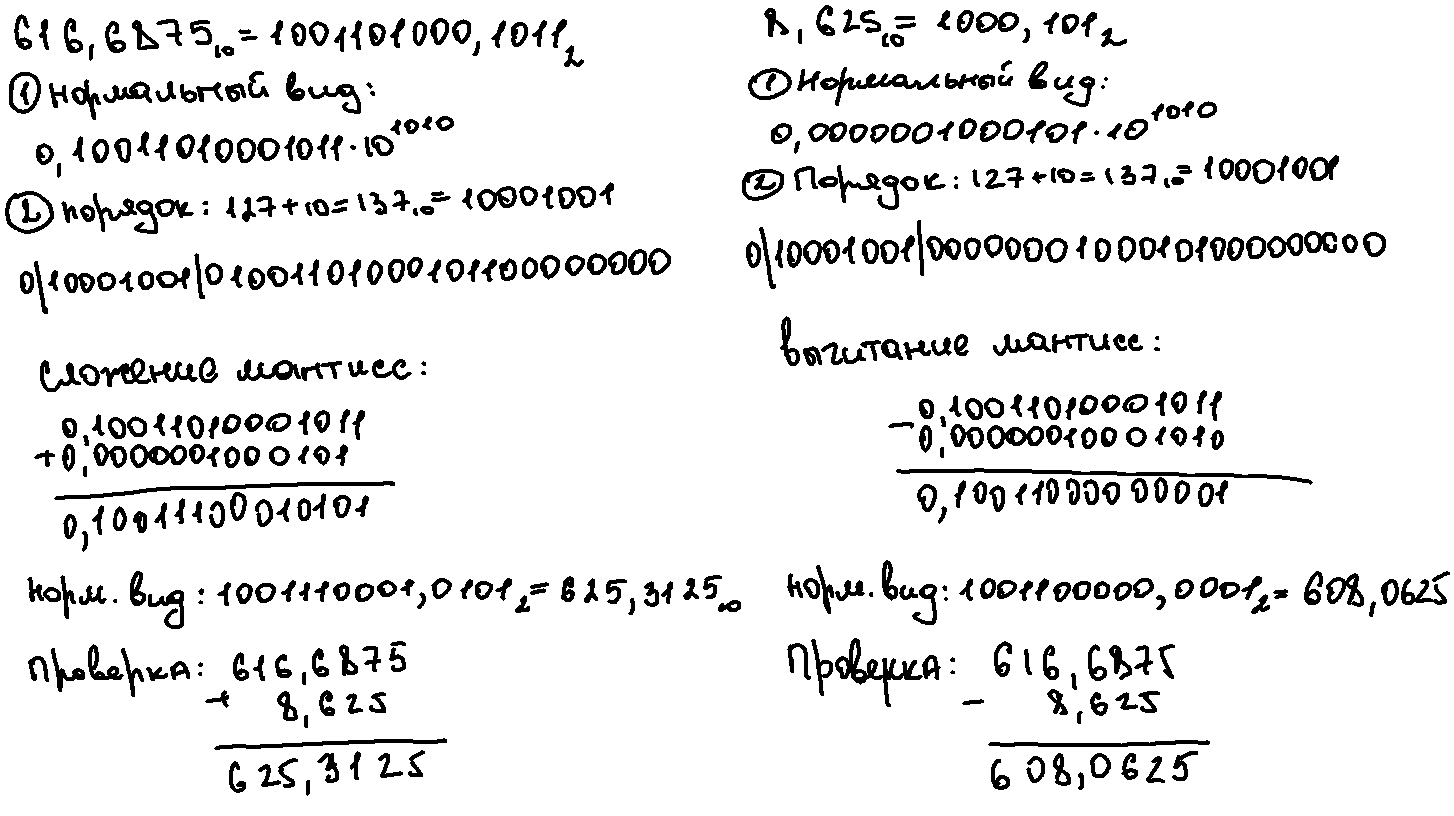 616,6875₁₀ = 1001101000,1011₂
① Нормальный вид:
0,10011010001011·10¹⁰¹⁰
② порядок: 127+10=137₁₀=10001001
0|10001001|01001101000101100000000
сложение мантисс:
0,10011010001011
+0,0000001000101
0,10011100010101
Норм. вид: 1001110001,0101₂=625,3125₁₀
Проверка: 616,6875
+ 8,625
625,3125
8,625₁₀ = 1000,101₂
① Нормальный вид:
0,0000001000101·10¹⁰¹⁰
② Порядок: 127+10=137₁₀=10001001
0|10001001|00000001000101000000000
Вычитание мантисс:
0,10011010001011
−0,00000010001010
0,10011000000001
Норм. вид: 1001100000,0001₂= 608,0625
Проверка: 616,6875
− 8,625
608,0625